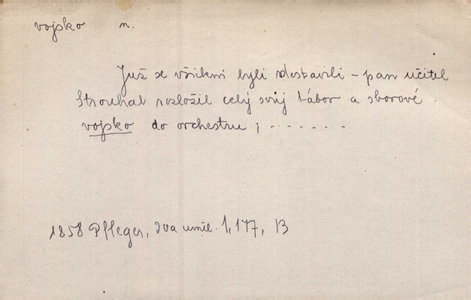 vojsko n.
Již se všikni byli dostavili – pan učitel
Strouhal rozložil celý svůj tábor a sborové
vojsko do orchestru ; . . . . . . .
1858 Pfleger, Dva uměl. 1,177, B